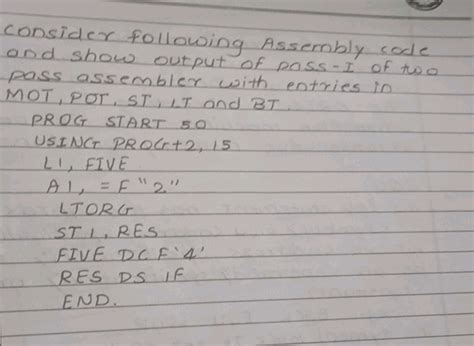 consider following Assembly code
and show output of pass-I of two
pass assembler with entries in
MOT, POT, ST, LT and BT.
PROG START 50
USING PROG+2, 15
L1, FIVE
A1, = F "2"
LTORG
ST1, RES
FIVE DC F '4'
RES DS 1F
END.